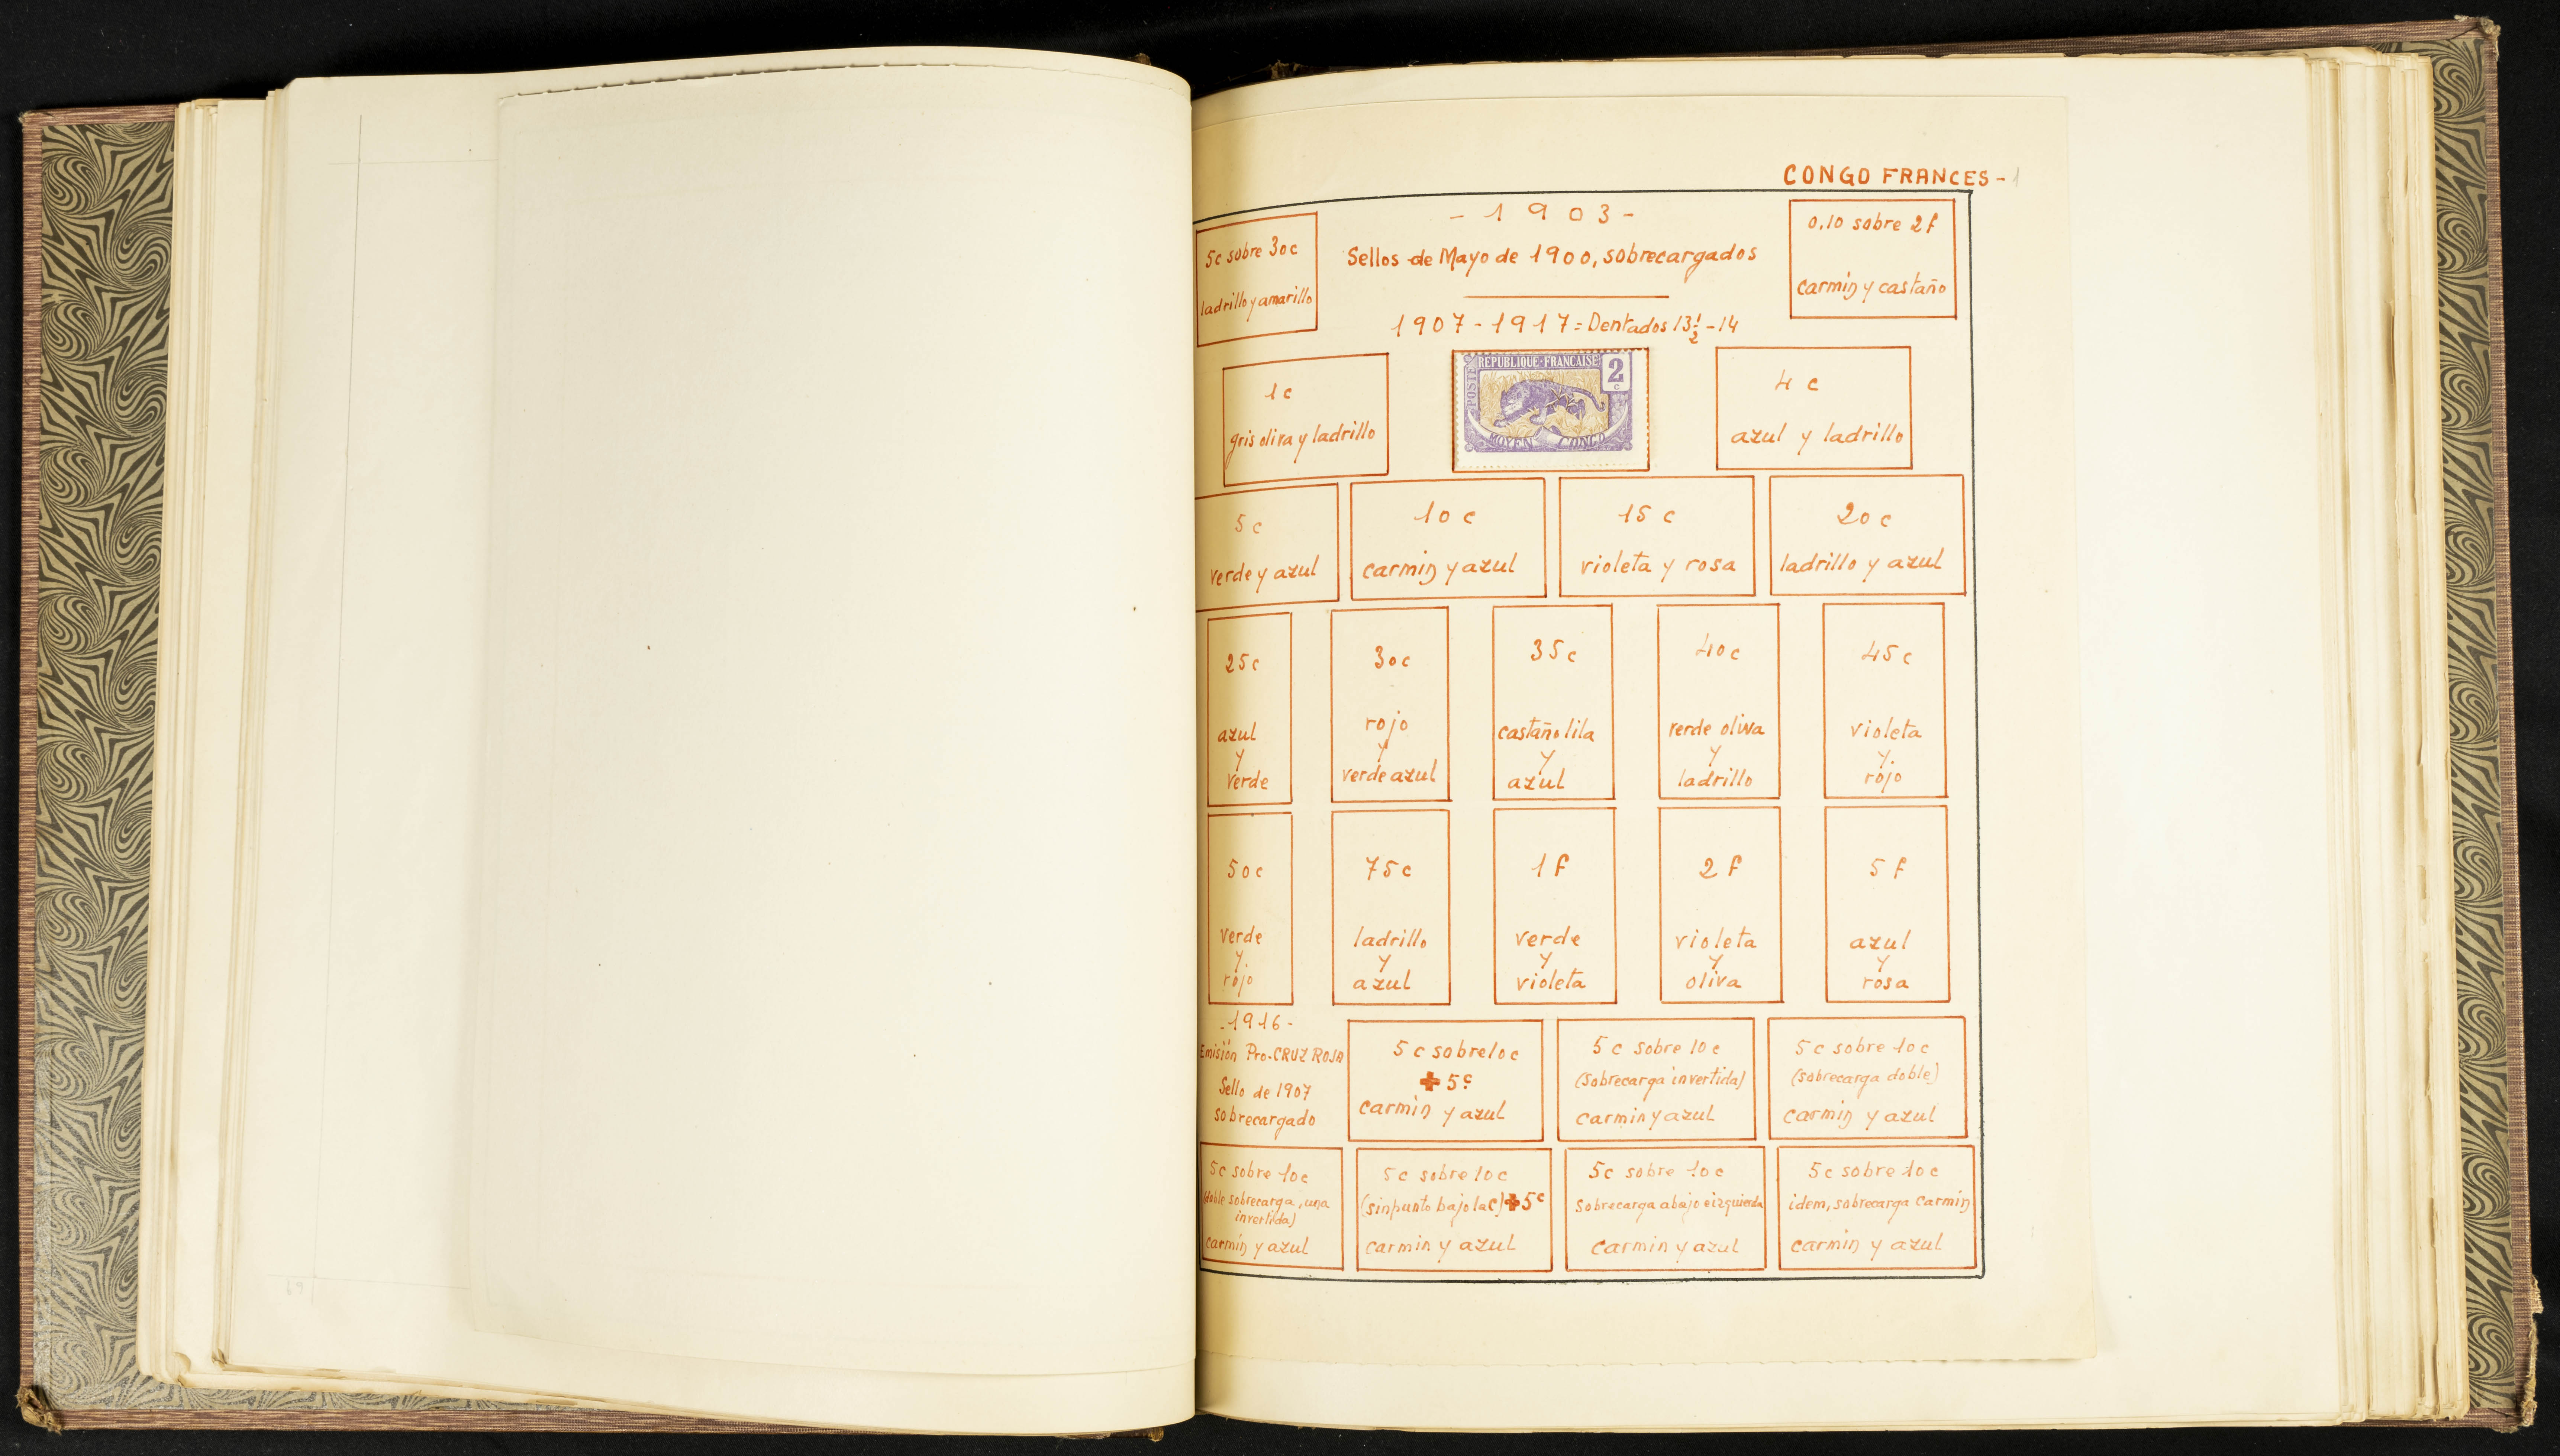 CONGO FRANCES - 1
- 1903 -
Sellos de Mayo de 1900, sobrecargados
5c sobre 30c
ladrillo y amarillo
0,10 sobre 2f
carmin y castaño
1907-1917 = Dentados 13½-14
1c
gris oliva y ladrillo
REPUBLIQUE·FRANÇAISE
POSTE
2
c
MOYEN CONGO
4 c
azul y ladrillo
5 c
verde y azul
10 c
carmin y azul
15 c
violeta y rosa
20 c
ladrillo y azul
25c
azul
y
verde
30c
rojo
y
verde azul
35c
castaño lila
y
azul
40c
verde oliva
y
ladrillo
45c
violeta
y
rojo
50c
verde
y
rojo
75c
ladrillo
y
azul
1 f
verde
y
violeta
2 f
violeta
y
oliva
5 f
azul
y
rosa
-1916-
Emisión Pro-CRUZ ROJA
Sello de 1907
sobrecargado
5 c sobre 10c
+ 5c
carmin y azul
5 c sobre 10 c
(sobrecarga invertida)
carmin y azul
5 c sobre 10 c
(sobrecarga doble)
carmin y azul
5c sobre 10c
(doble sobrecarga, una
invertida)
carmin y azul
5c sobre 10c
(sin punto bajo la c) + 5c
carmin y azul
5c sobre 10c
Sobrecarga abajo e izquierda
carmin y azul
5c sobre 10c
idem, sobrecarga carmin
carmin y azul
69